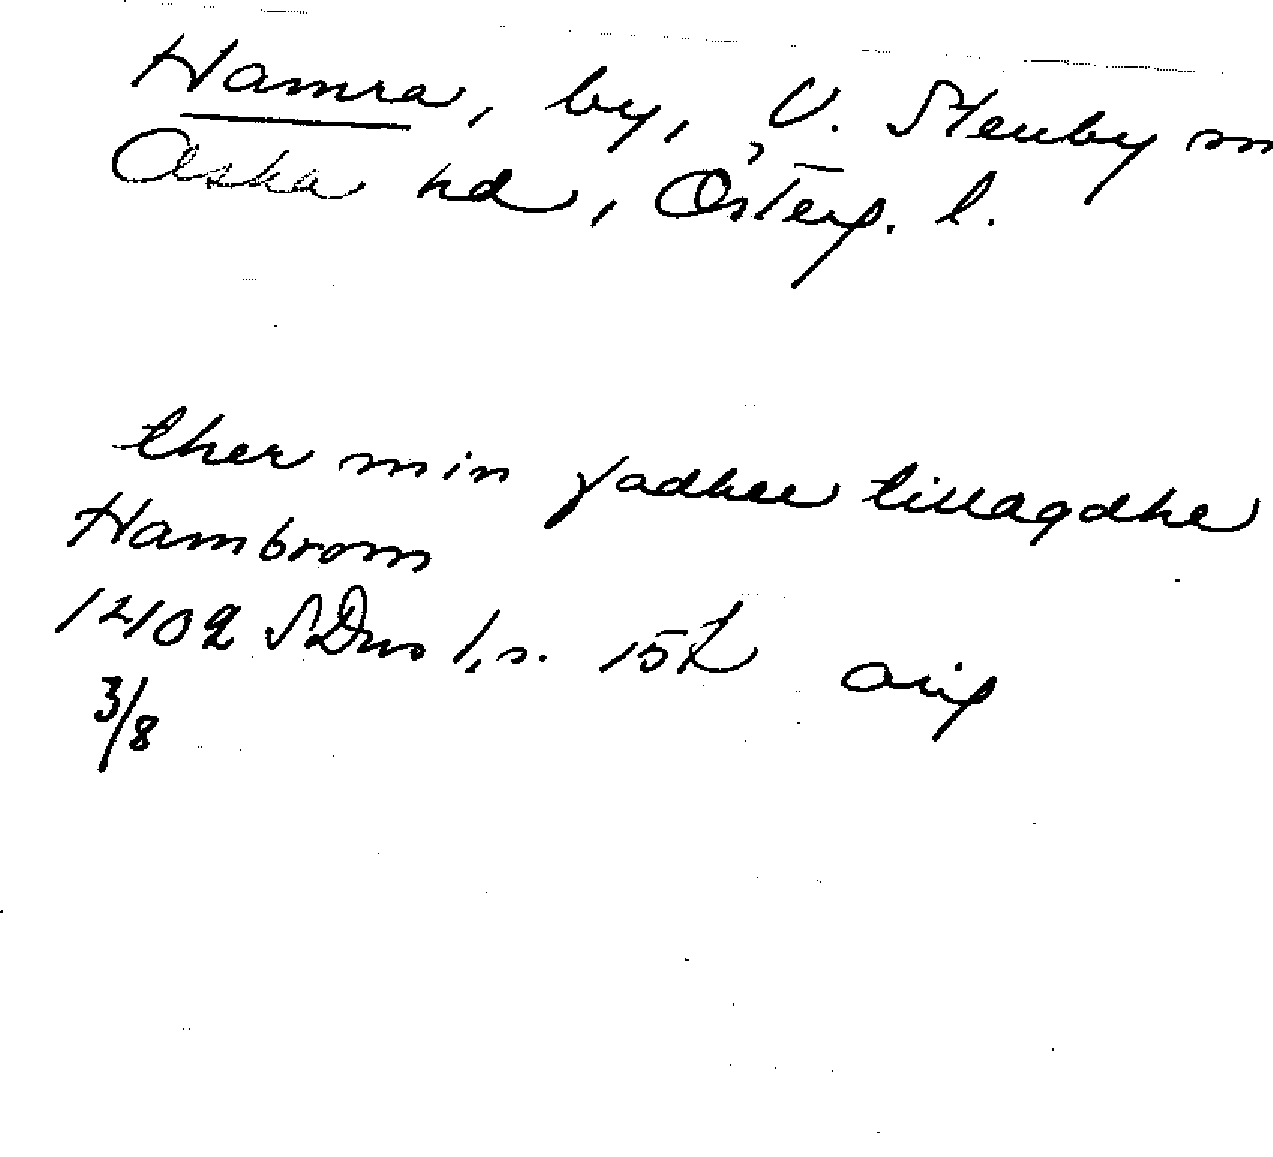 Hamra, by, V. Stenby sn
Aska hd, Österg. l.
ther min fadher tillagdhe
Hambrom
1402 SDns 1, s. 152 orig
3/8